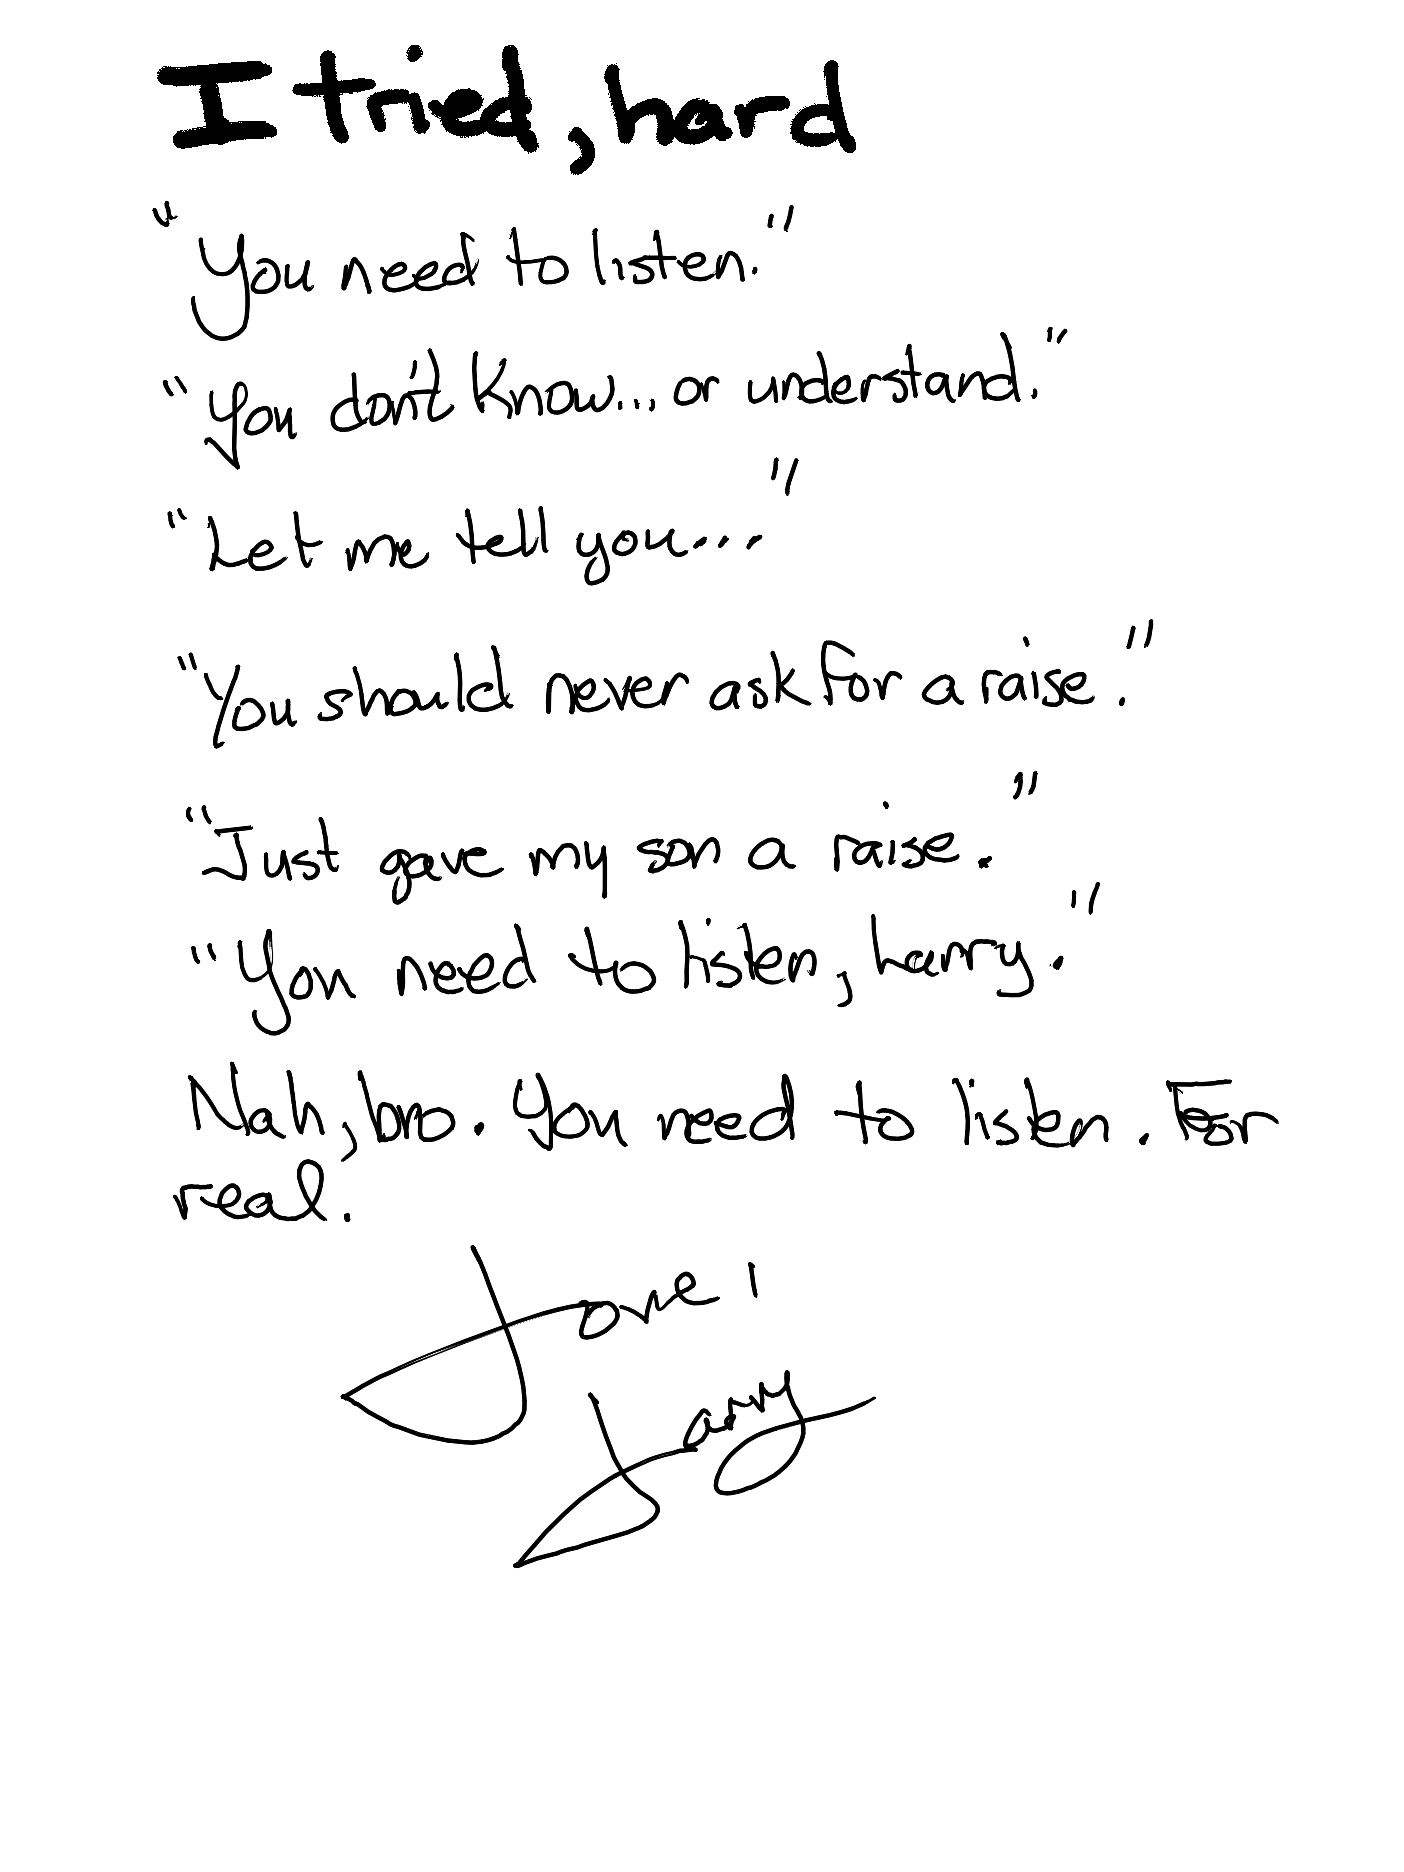 I tried, hard
"You need to listen."
"You don't know... or understand."
"Let me tell you..."
"You should never ask for a raise."
"Just gave my son a raise."
"You need to listen, Larry."
Nah, bro. You need to listen. For
real.
Love,
Larry